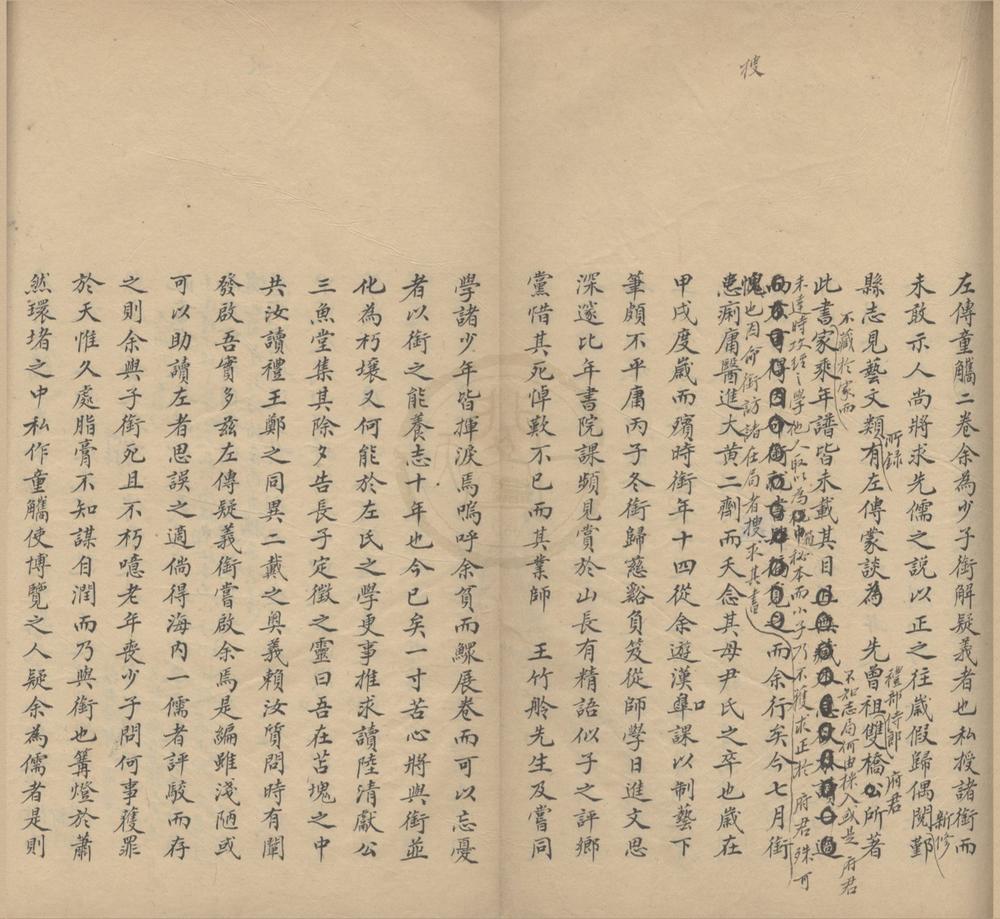 搜
左傳童觿二卷余為少子銜解疑義者也私授諸銜而
未敢示人尚將求先儒之説以正之往歲假歸偶閱鄞
新修
縣志見藝文類有左傳蒙談為 先曾祖雙橋公所著
所録
禮部侍郎 府君
此書家乘年譜皆未載其目
不藏於家而
不知志局何由採入或是府君
未達時攻經之學他人取以為
秘本而小子乃不獲求正於 府君殊可
愧也因命銜訪諸在局者搜求其書
而余行矣今七月銜
患痢庸醫進大黄二劑而夭念其母尹氏之卒也歲在
甲戌度歲而殯時銜年十四從余遊漢皐課以制藝下
口
筆頗不平庸丙子冬銜歸慈谿負笈從師學日進文思
深邃比年書院課頻見賞於山長有精語似子之評鄉
黨惜其死悼歎不已而其業師 王竹舲先生及嘗同
學諸少年皆揮淚焉嗚呼余貧而鰥展卷而可以忘憂
者以銜之能養志十年也今已矣一寸苦心將與銜並
化為朽壤又何能於左氏之學更事推求讀陸清獻公
三魚堂集其除夕告長子定徵之靈曰吾在苫塊之中
共汝讀禮王鄭之同異二戴之奧義賴汝質問時有闡
發啟吾實多茲左傳疑義銜嘗啟余焉是編雖淺陋或
可以助讀左者思誤之適倘得海内一儒者評駮而存
之則余與子銜死且不朽噫老年喪少子問何事獲罪
於天惟久處脂膏不知謀自潤而乃與銜也篝燈於蕭
然環堵之中私作童觿使博覽之人疑余為儒者是則